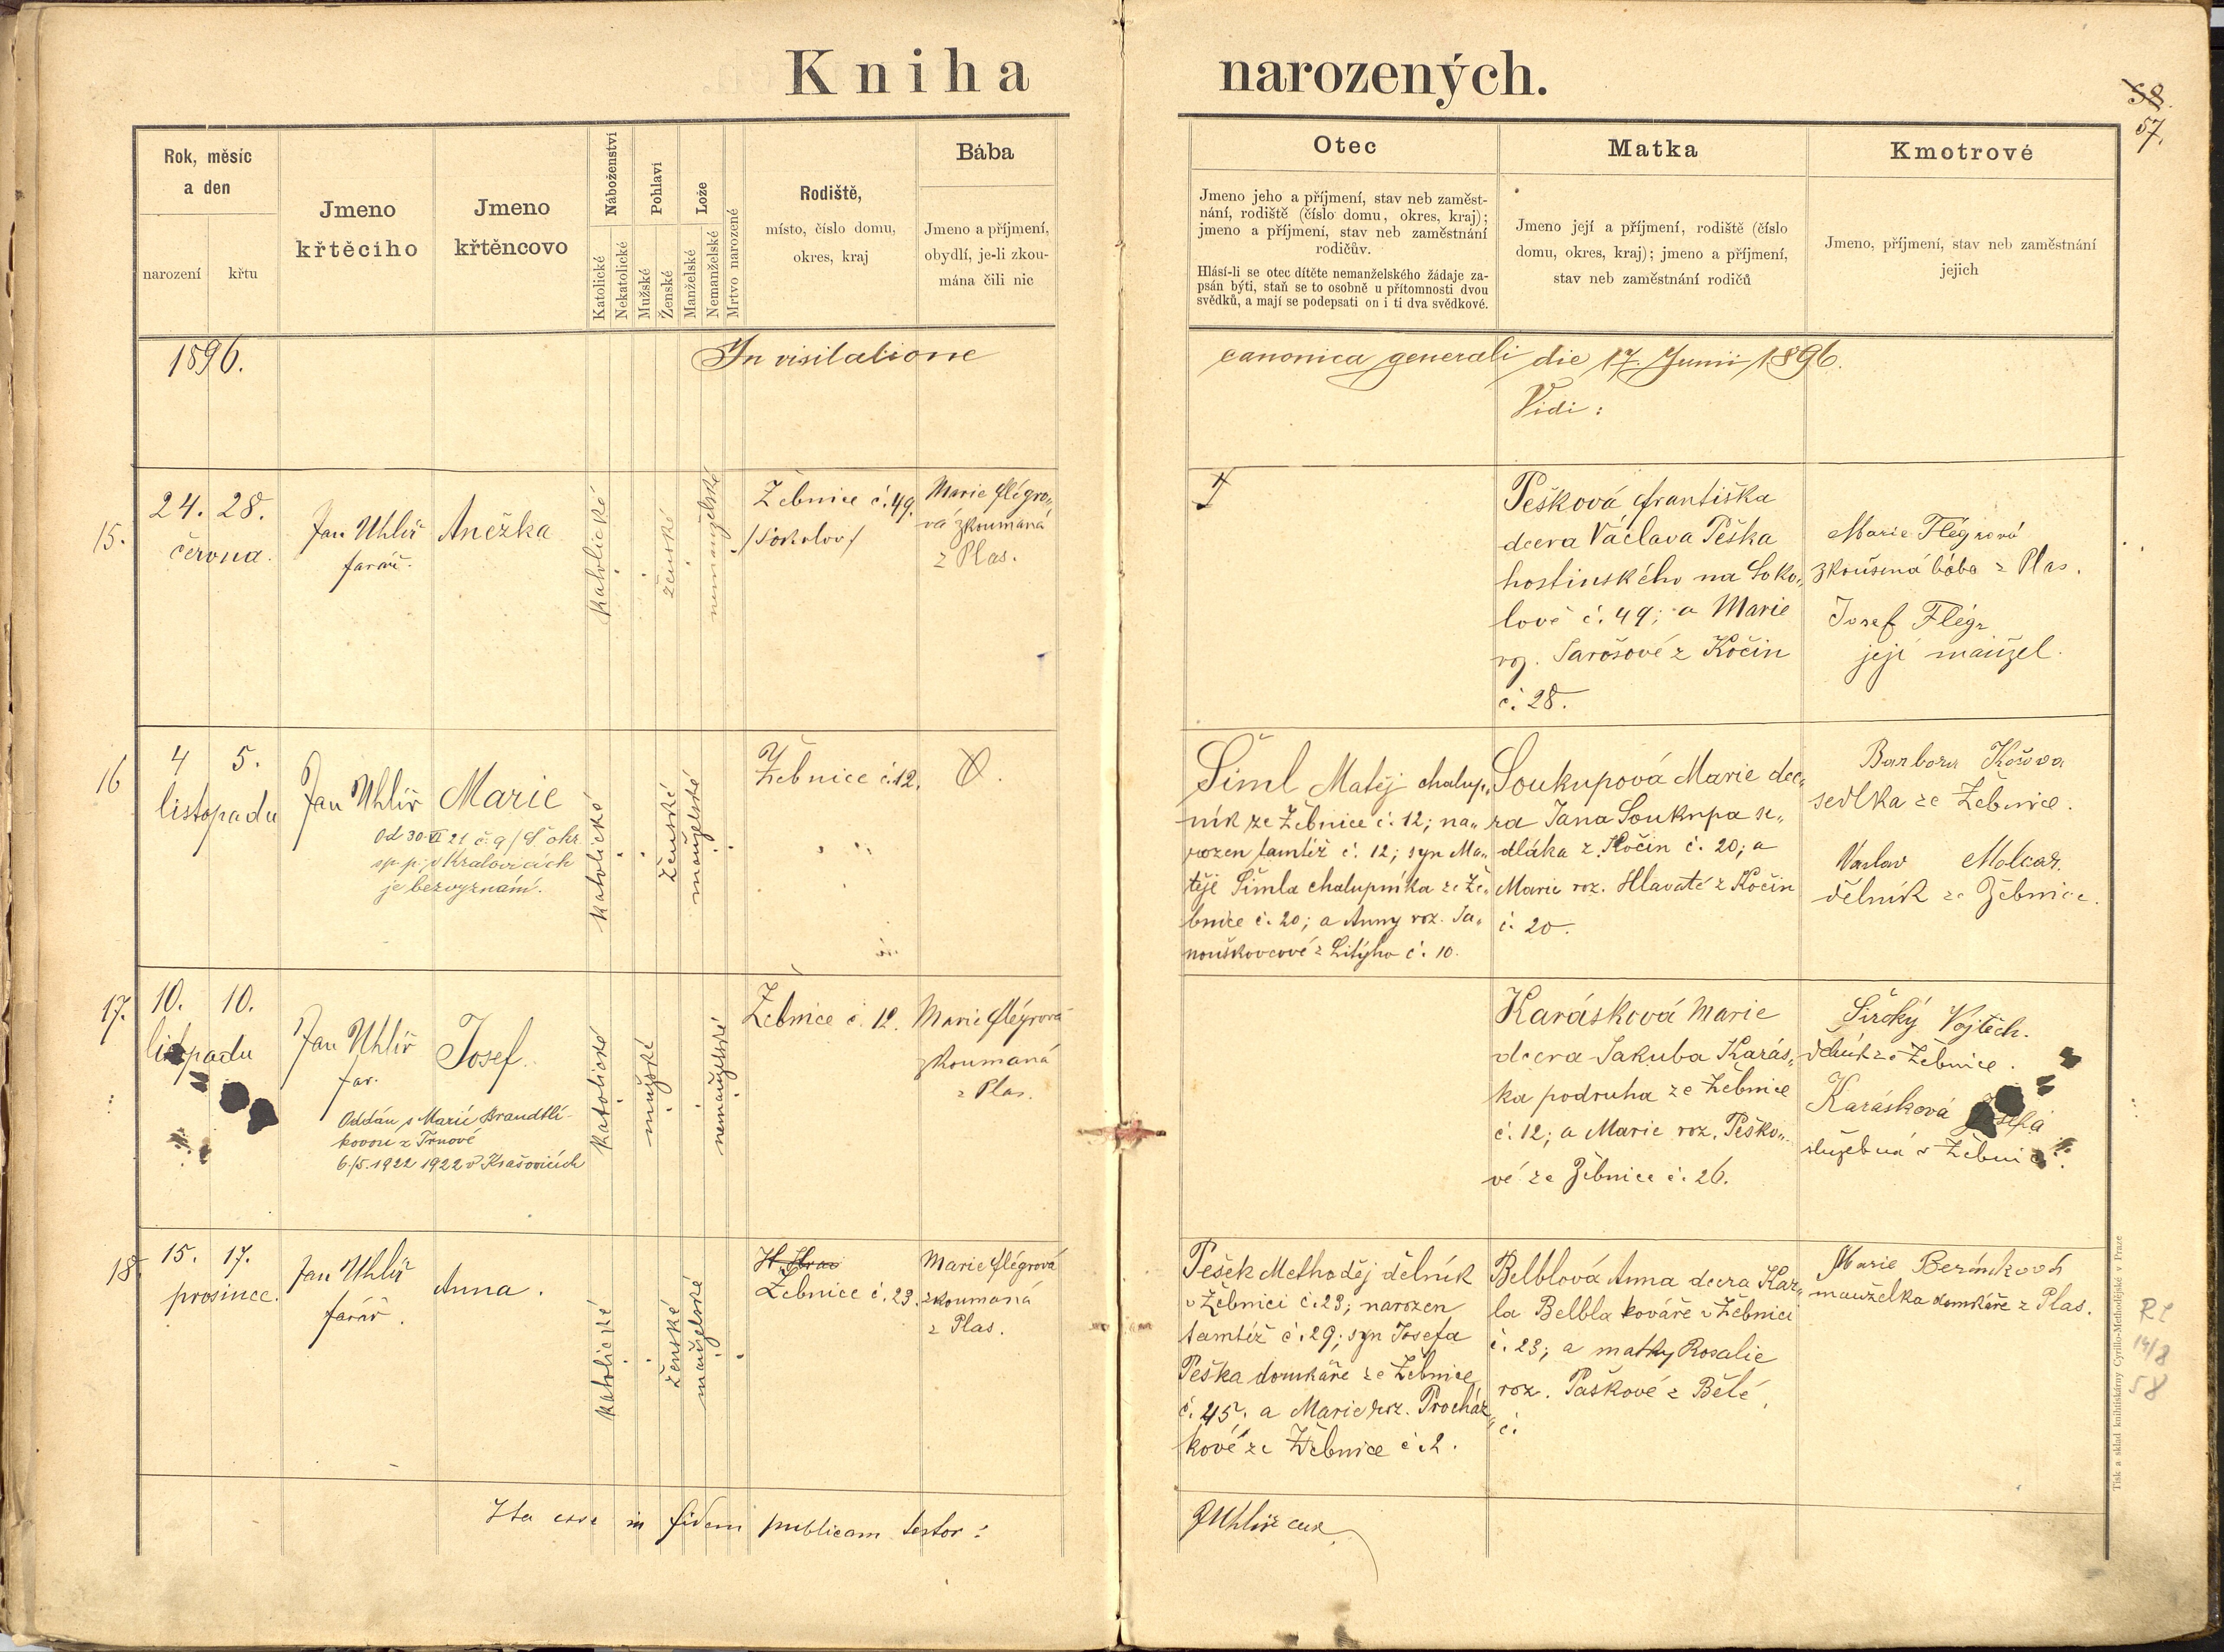 Kniha narozených.
58.
57.
Rok, měsíc
a den
narození
křtu
Jmeno
křtěcího
Jmeno
křtěncovo
Náboženství
Katolické
Nekatolické
Pohlaví
Mužské
Ženské
Lože
Manželské
Nemanželské
Mrtvo narozené
Rodiště,
místo, číslo domu,
okres, kraj
Bába
Jmeno a příjmení,
obydlí, je-li zkou-
mána čili nic
Otec
Jmeno jeho a příjmení, stav neb zaměst-
nání, rodiště (číslo domu, okres, kraj);
jmeno a příjmení, stav neb zaměstnání
rodičův.
Hlásí-li se otec dítěte nemanželského žádaje za-
psán býti, staň se to osobně u přítomnosti dvou
svědků, a mají se podepsati on i ti dva svědkové.
Matka
Jmeno její a příjmení, rodiště (číslo
domu, okres, kraj); jmeno a příjmení,
stav neb zaměstnání rodičů
Kmotrové
Jmeno, příjmení, stav neb zaměstnání
jejich
1896.
In visitatione canonica generali die 17. Junii 1896.
Vidi:
15.
24. 28.
června.
Jan Uhlíř
farář.
Anežka
katolické
ženské
nemanželské
Žebnice č. 49.
/Sokolov/
Marie Flégro„
vá zkoumaná
z Plas.
Pešková Františka
dcera Václava Peška
hostinského na Soko„
lově č. 49; a Marie
roz. Sarošové z Kočin
č. 28.
Marie Flégrová
zkoušená bába z Plas.
Josef Flégr
její manžel.
16
4 5.
listopadu
Jan Uhlíř
Marie
Od 30 VI 21 č. 9/
sp. p. v Kralovicích
je bez vyznání.
katolické
ženské
manželské
Žebnice č. 12.
Šiml Matěj chalup„
ník ze Žebnice č. 12; na„
rozen tamtéž č. 12; syn Ma„
těje Šimla chalupníka ze Že„
bnice č. 20; a Anny roz. Ja„
nouškovcové z Litýho č. 10.
Soukupová Marie dce„
ra Jana Soukupa se„
dláka z Kočin č. 20; a
Marie roz. Hlavaté z Kočin
č. 20.
Barbora
sedlka ze Žebnice.
Václav Molcar.
dělník ze Žebnice.
17.
10. 10.
listopadu
Jan Uhlíř
far.
Josef.
Oddán s Marií Brandtlí-
kovou z Trnové
6./5. 1922 1922 v Krašovicích
katolické
mužské
nemanželské
Žebnice č. 12.
Marie Flégrová
zkoumaná
z Plas.
Karásková Marie
dcera Jakuba Karás„
ka podruha ze Žebnice
č. 12; a Marie roz. Peško„
vé ze Žebnice č. 26.
Široký Vojtěch.
dělník ze Žebnice.
Karásková
služebná v Žebnici.
18.
15. 17.
prosince.
Jan Uhlíř
farář.
Anna.
katolické
ženské
manželské
Žebnice č. 23.
Marie Flégrová
zkoumaná
z Plas.
Pešek Methoděj dělník
v Žebnici č. 23; narozen
tamtéž č. 29; syn Josefa
Peška domkáře ze Žebnice
č. 45; a Marie roz. Procház„
kové ze Žebnice č. 2.
Belblová Anna dcera Kar„
la Belbla kováře v Žebnici
č. 23; a matky Rosalie
roz. Paškové z Bělé,
č.
Marie
manželka domkáře z Plas.
RL
14/8
58
Ita esse in fidem publicam testor:
J Uhlíř cur.
Tisk a sklad knihtiskárny Cyrillo-Methodějské v Praze